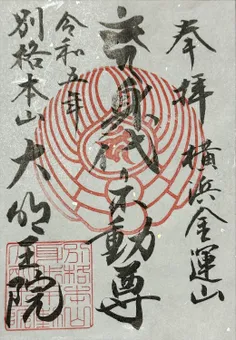 奉拝
横浜金運山
身代り不動尊
令和五年
別格本山大明王院